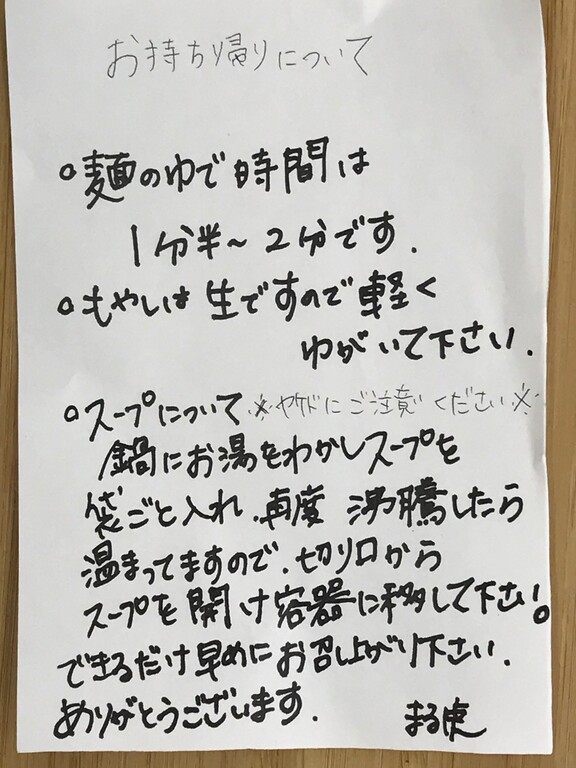 お持ち帰りについて
○麺のゆで時間は
1分半～2分です.
○もやしは生ですので軽く
ゆがいて下さい.
○スープについて ※ヤケドにご注意ください※
鍋にお湯をわかしスープを
袋ごと入れ.再度 沸騰したら
温まってますので.切り口から
スープを開け容器に移して下さい。
できるだけ早めにお召し上がり下さい.
ありがとうございます. まる虎